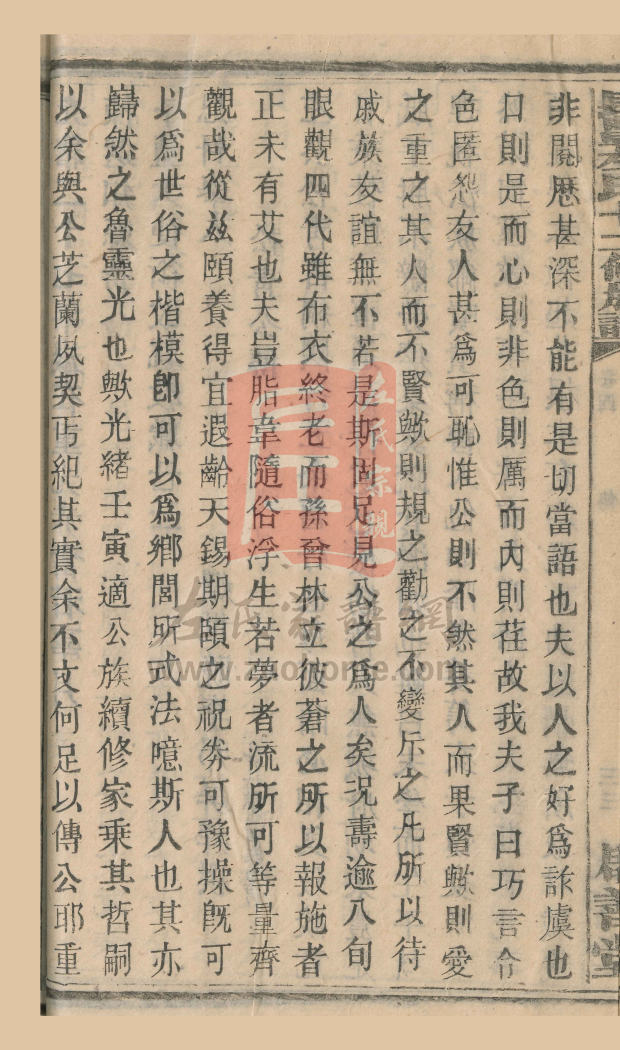 非閱歷甚深不能有是切當語也夫以人之好爲詐虞也
口則是而心則非色則厲而內則荏故我夫子曰巧言令
色匿怨友人甚爲可恥惟公則不然其人而果賢歟則愛
之重之其人而不賢歟則規之勸之不變斥之凡所以待
戚族友誼無不若是斯固足見公之爲人矣况壽逾八旬
眼觀四代雖布衣終老而孫曾林立彼蒼之所以報施者
正未有艾也夫豈脂韋隨俗浮生若夢者流所可等量齊
觀哉從玆頤養得宜遐齡天錫期頤之祝劵可豫操旣可
以爲世俗之楷模卽可以爲鄉閭所式法噫斯人也其亦
巋然之魯靈光也歟光緒壬寅適公族續修家乘其哲嗣
以余與公芝蘭夙契丐紀其實余不文何足以傳公耶重
左氏宗親
左氏家譜網
www.zuohome.com